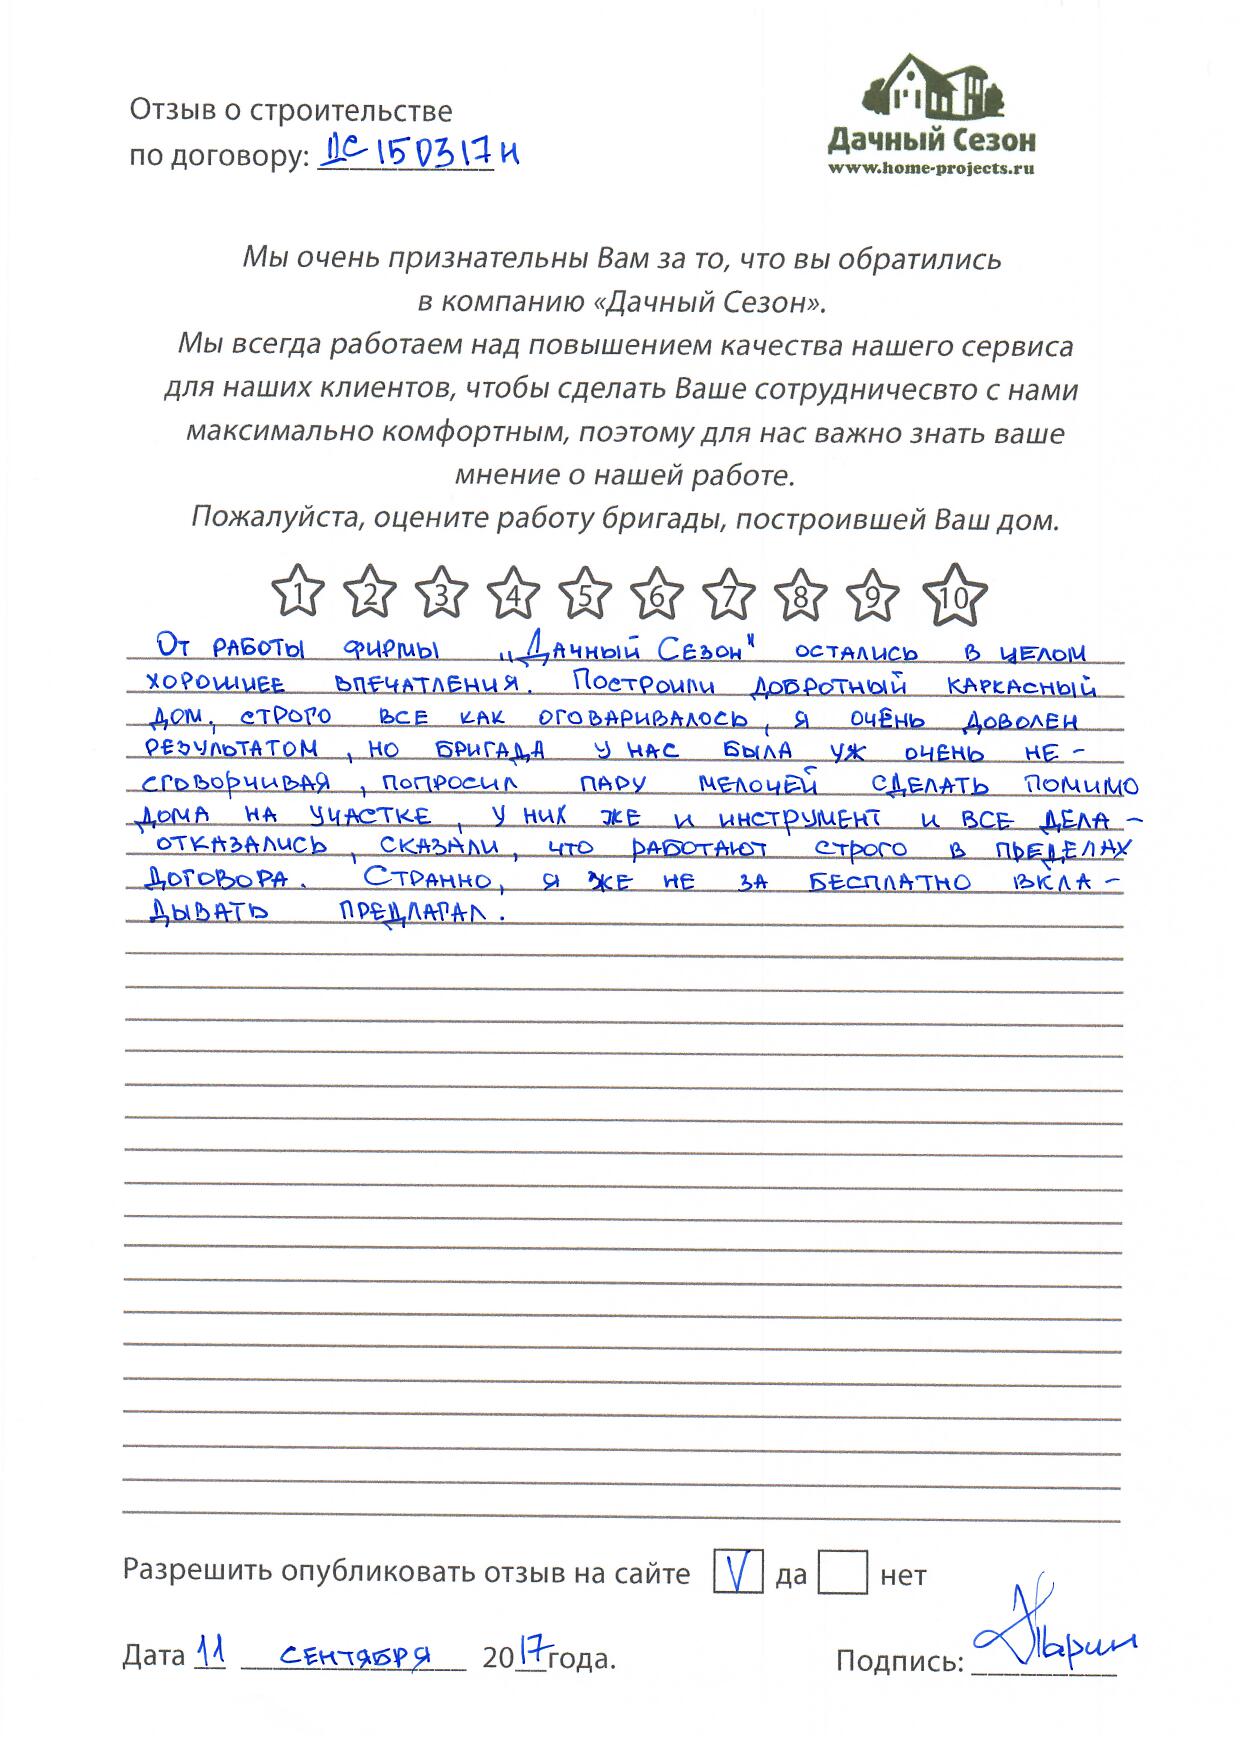 Отзыв о строительстве
по договору: ДС 150317Н
Дачный Сезон
www.home-projects.ru
Мы очень признательны Вам за то, что вы обратились
в компанию «Дачный Сезон».
Мы всегда работаем над повышением качества нашего сервиса
для наших клиентов, чтобы сделать Ваше сотрудничесвто с нами
максимально комфортным, поэтому для нас важно знать ваше
мнение о нашей работе.
Пожалуйста, оцените работу бригады, построившей Ваш дом.
1 2 3 4 5 6 7 8 9 10
От работы фирмы „Дачный Сезон" остались в целом
хорошиее впечатления. Построили добротный каркасный
дом, строго все как оговаривалось, я очень доволен
результатом, но бригада у нас была уж очень не-
сговорчивая, попросил пару мелочей сделать помимо
дома на участке, у них же и инструмент и все дела -
отказались, сказали, что работают строго в пределах
договора. Странно, я же не за бесплатно вкла-
дывать предлагал.
Разрешить опубликовать отзыв на сайте V да нет
Дата 11 сентября 2017 года. Подпись: